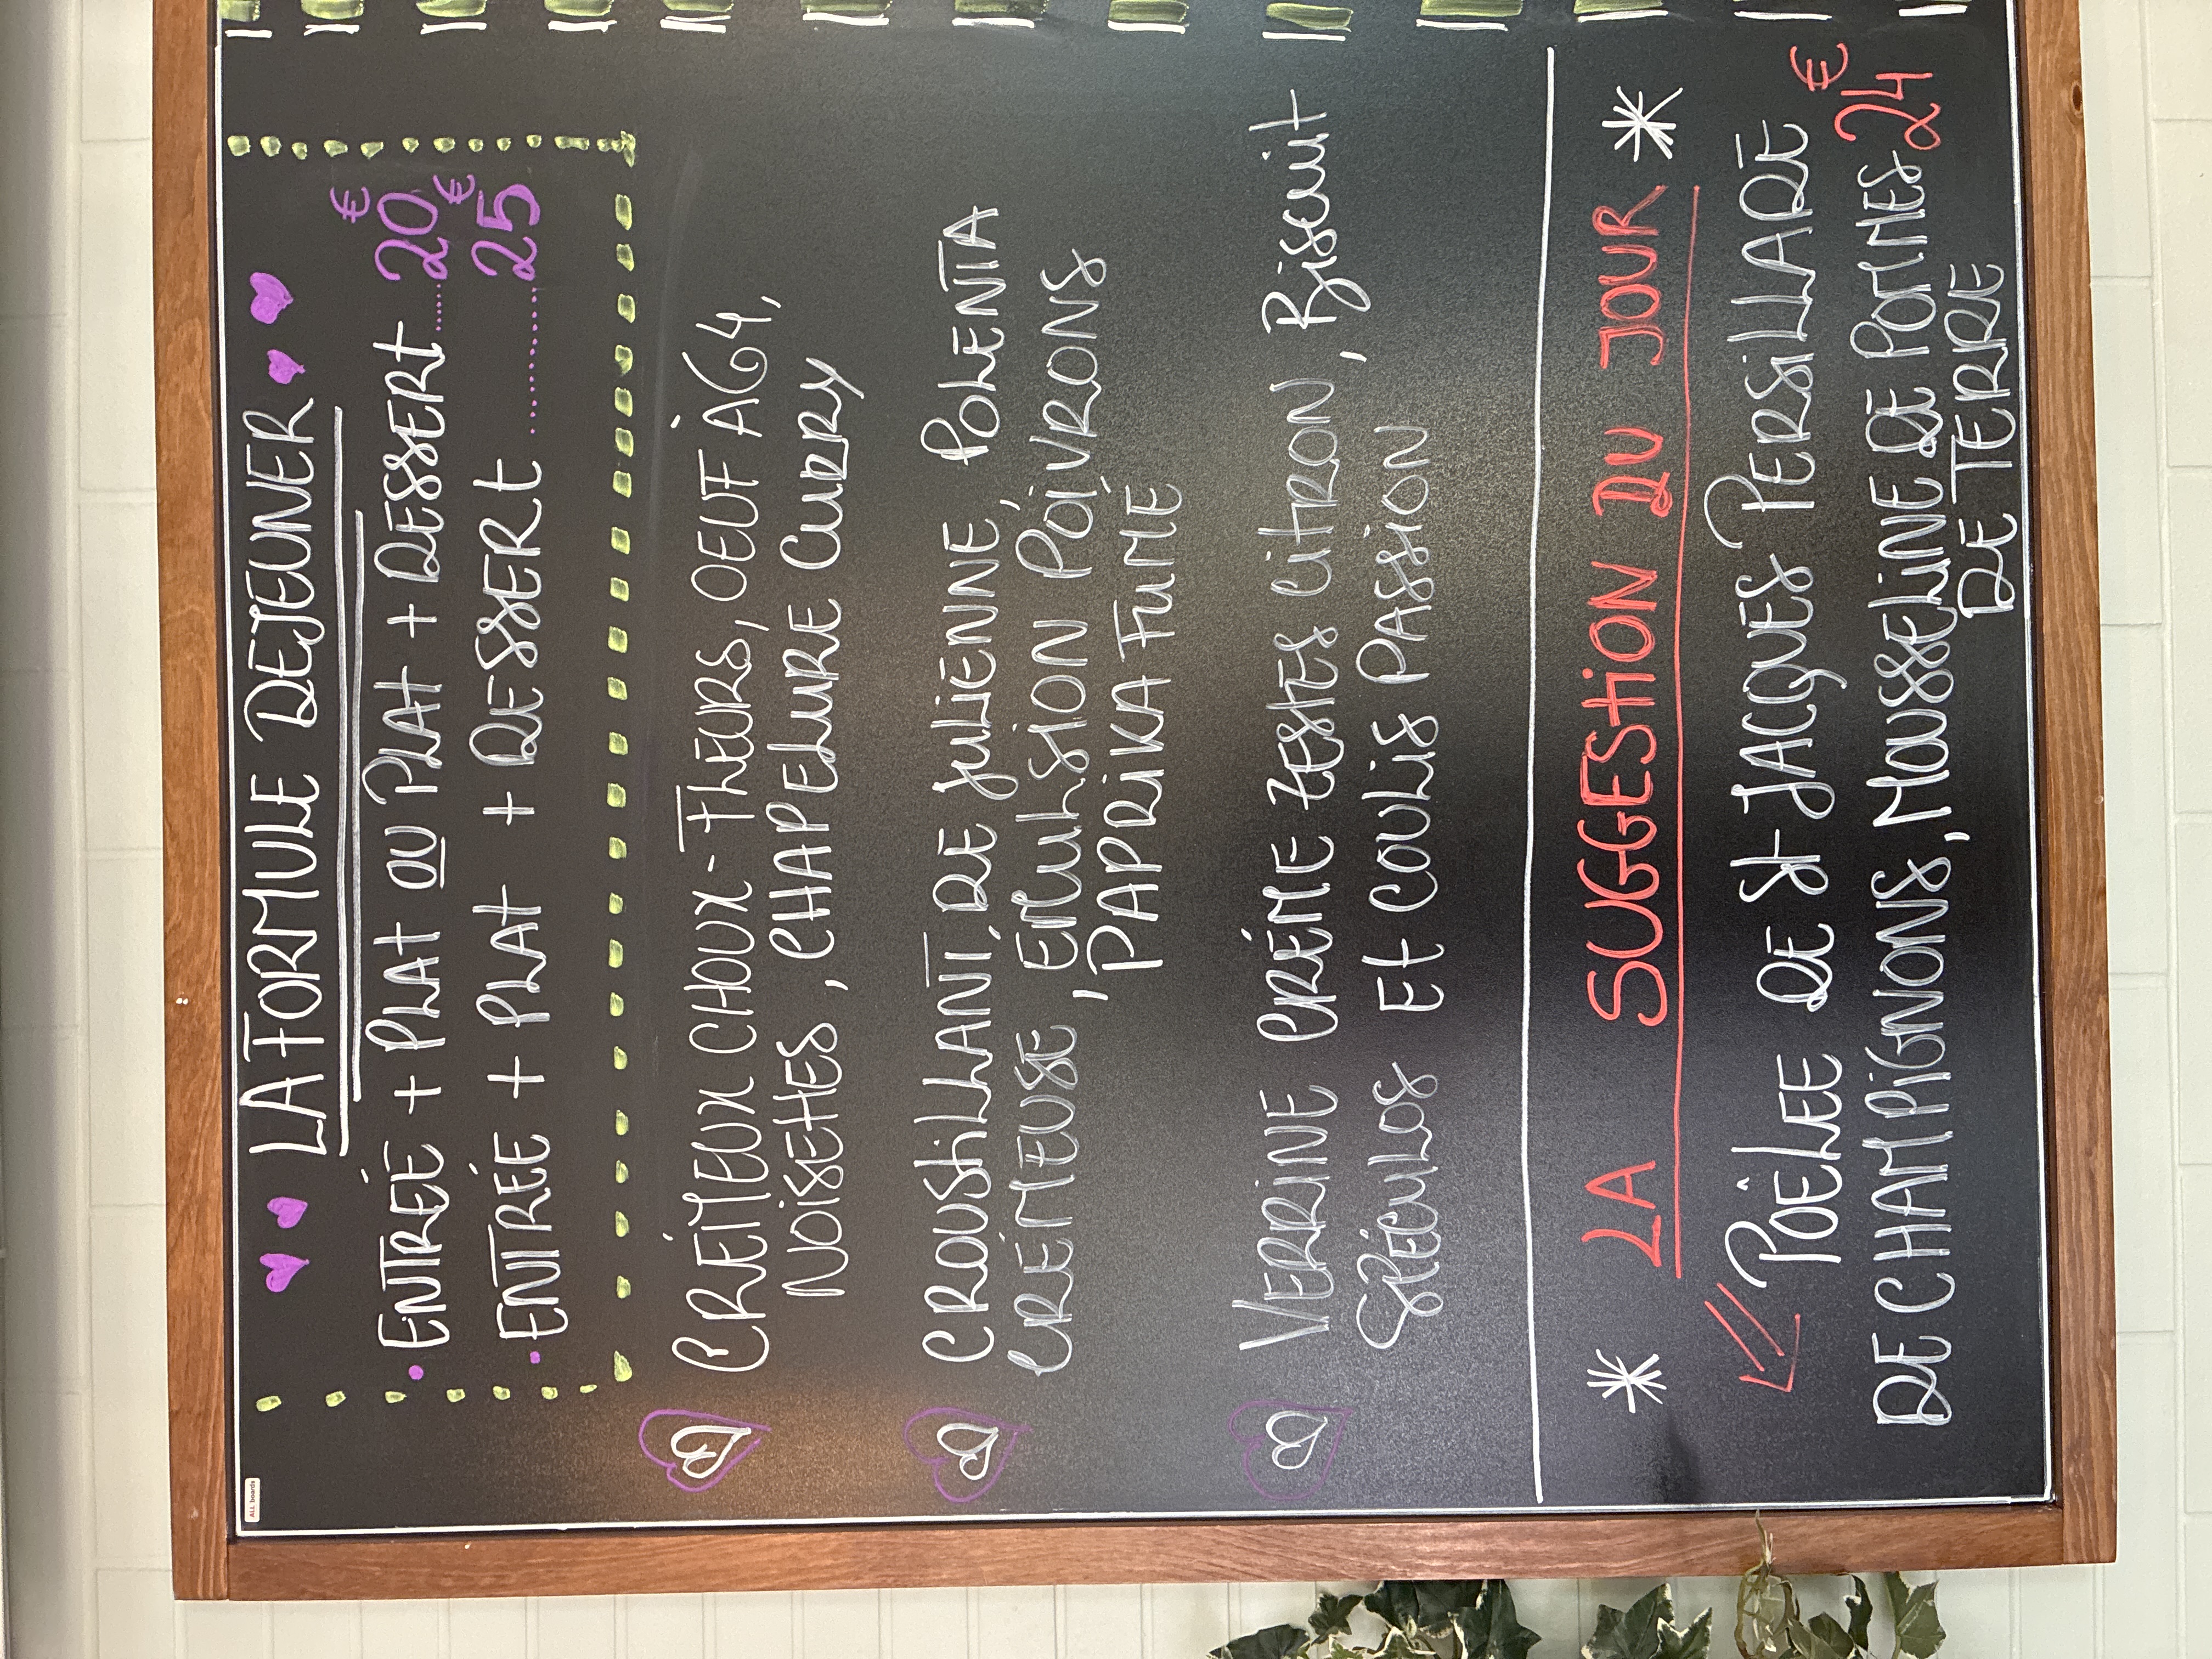 LA FORMULE DEJEUNER
• ENTRÉE + PLAT OU PLAT + DESSERT ...... 20€
• ENTRÉE + PLAT + DESSERT ............ 25€
CRÉMEUX CHOUX-FLEURS, OEUF À 64,
NOISETTES, CHAPELURE CURRY
CROUSTILLANT DE JULIENNE, POLENTA
CRÉMEUSE, ÉMULSION POIVRONS
PAPRIKA FUMÉ
VERRINE CRÉME ZESTES CITRON, BISCUIT
SPÉCULOS ET COULIS PASSION
* LA SUGGESTION DU JOUR *
POÊLEE DE ST JACQUES PERSILLADE
DE CHAMPIGNONS, MOUSSELINE DE POMMES 24€
DE TERRE
ALL boards